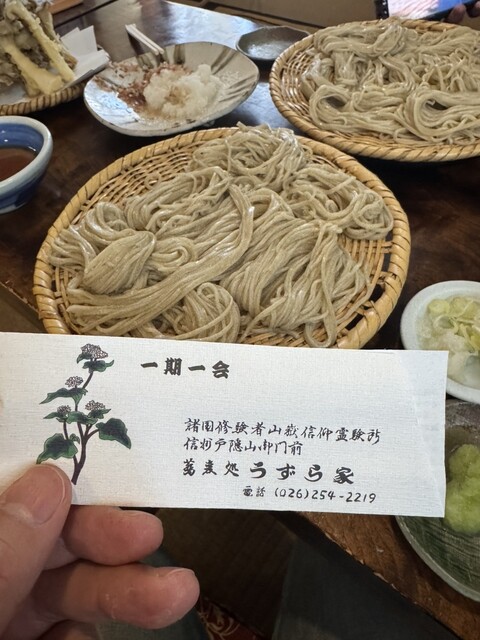 一期一会
諸国修験者山嶽信仰霊験所
信州戸隠山御門前
蕎麦処 うずら家
電話 (026)254-2219